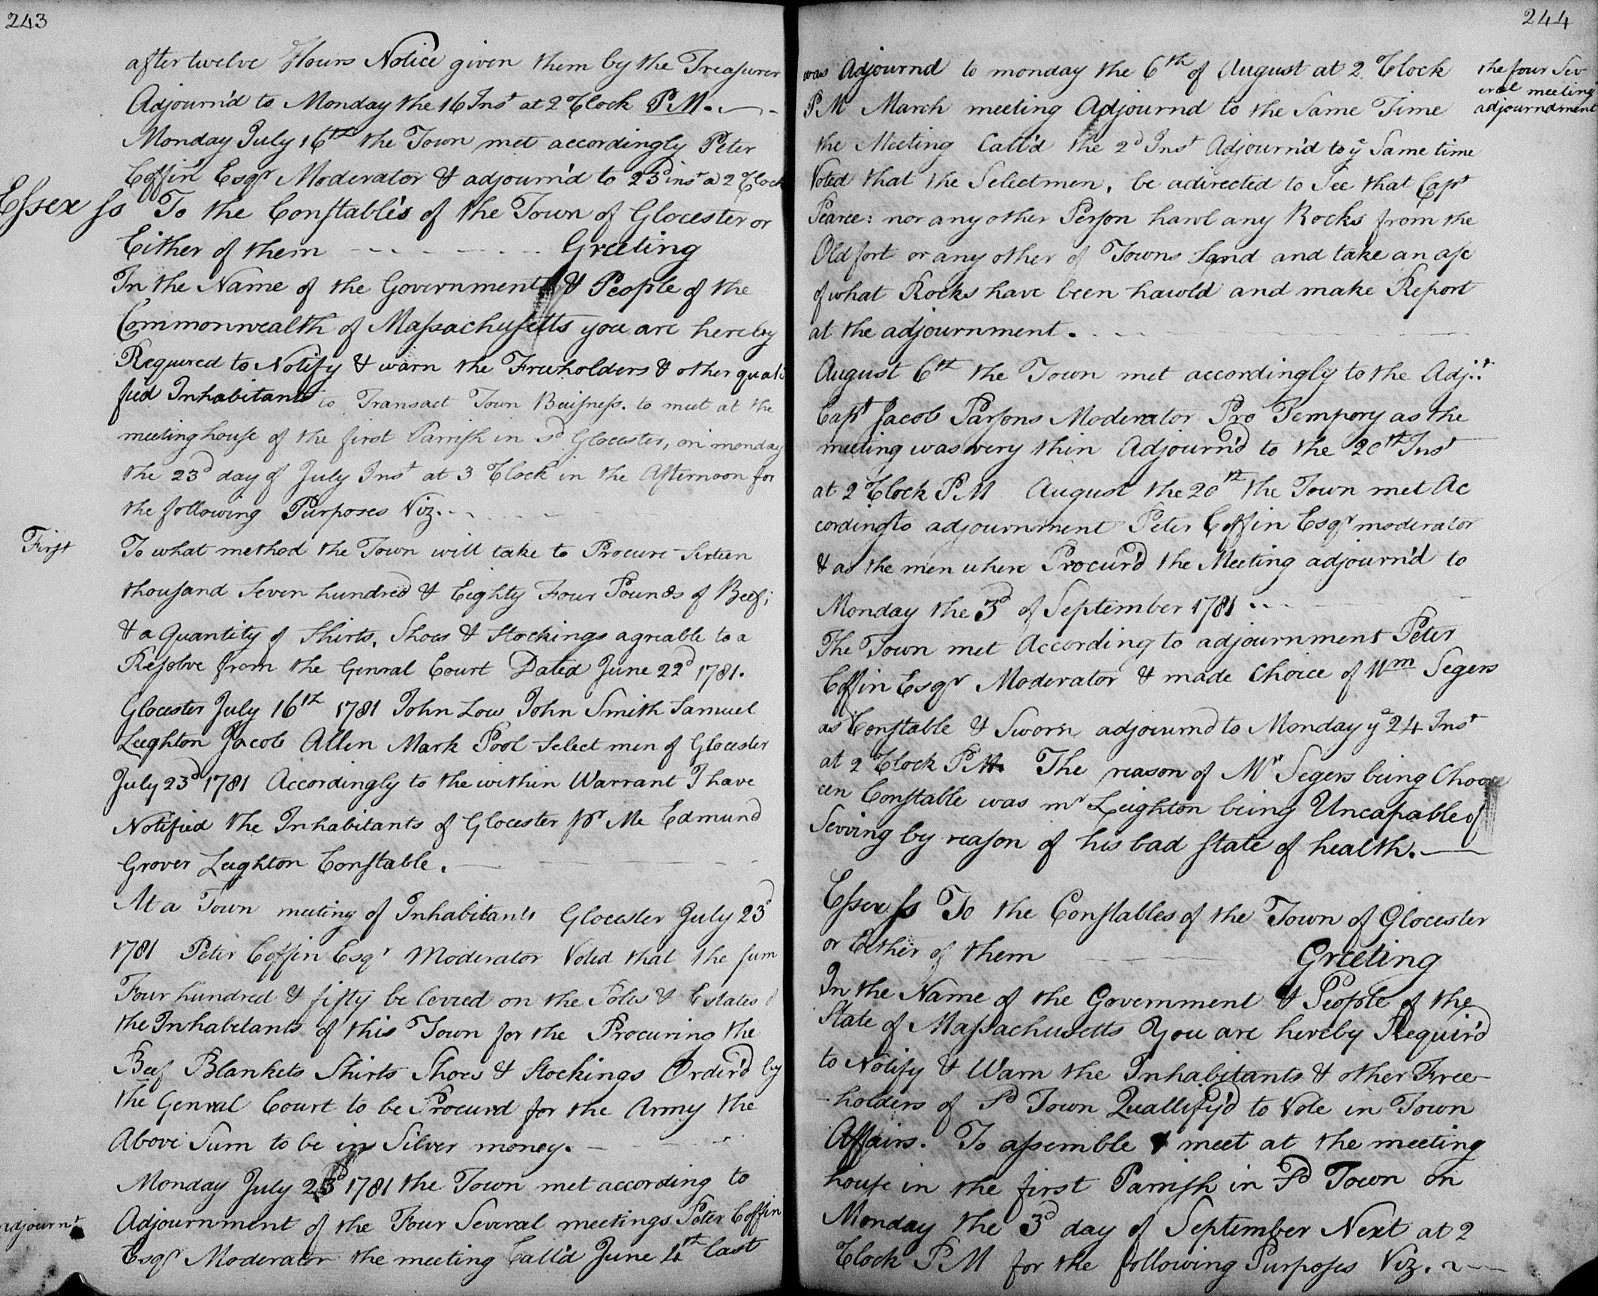 243
after twelve Hours Notice given them by the Treasurer
Adjourn'd to Monday the 16 Inst at 2 Clock P.M.
Monday July 16th the Town met accordingly Peter
Coffin Esqr Moderator & adjourn'd to 23d inst a 2 Clock
Essex ss To the Constable's of the Town of Glocester or
Either of them Greeting
In the Name of the Government & People of the
Commonwealth of Massachusetts you are hereby
Required to Notify & warn the Freeholders & other quali
fied Inhabitants to Transact Town Buisness. to meet at the
meeting house of the first Parrish in sd Glocester, on monday
the 23d day of July Inst at 3 Clock in the Afternoon for
the following Purposes Viz.
First To what method the Town will take to Procure Sixteen
thousand Seven hundred & Eighty Four Pounds of Beef;
& a Quantity of Shirts, Shoes & Stockings agreable to a
Resolve from the Genral Court Dated June 22d 1781.
Glocester July 16th 1781 John Low John Smith Samuel
Leighton Jacob Allen Mark Pool Select men of Glocester
July 23d 1781 Accordingly to the within Warrant I have
Notified the Inhabitants of Glocester pr Me Edmund
Grover Leighton Constable.
At a Town meeting of Inhabitants Glocester July 23d
1781 Peter Coffin Esqr Moderator Voted that the sum
Four hundred & fifty be levied on the Poles & Estates
the Inhabitants of this Town for the Procuring the
Beef Blankets Shirts Shoes & Stockings Order'd by
the Genral Court to be Procurd for the Army the
Above Sum to be in Silver money.
Monday July 23d 1781 the Town met according to
Adjournt Adjournment of the Four Several meetings Peter Coffin
Esqr Moderator the meeting Call'd June 4th last
244
was Adjournd to monday the 6th of August at 2 Clock
the four Sev
eral meeting
adjourndment
PM March meeting Adjournd to the Same Time
the Meeting Call'd the 2d Inst Adjourn'd to ye Same time
Voted that the Selectmen, be adirected to See that Capt
Pearce: nor any other Person hawl any Rocks from the
Old fort or any other of Towns Land and take an a/c
of what Rocks have been hawld and make Report
at the adjournment.
August 6th the Town met accordingly to the Adjt
Capt Jacob Parsons Moderator Pro Tempory as the
meeting was very thin Adjourn'd to the 20th Inst
at 2 Clock PM August the 20th the Town met Ac
cording to adjournment Peter Coffin Esqr moderator
& as the men where Procur'd the Meeting adjourn'd to
Monday the 3d of September 1781
The Town met According to adjournment Peter
Coffin Esqr Moderator & made Choice of Wm Segers
as Constable & Sworn adjournd to Monday ye 24 Inst
at 2 Clock PM. The reason of Mr Segers being Choos
en Constable was mr Leighton being Uncapable of
Serving by reason of his bad state of health.
Essex ss To the Constables of the Town of Glocester
or Either of them Greeting
In the Name of the Government & People of the
State of Massachusetts You are hereby Requir'd
to Notify & Warn the Inhabitants & other Free
holders of Sd Town Quallify'd to Vote in Town
Affairs. To assemble & meet at the meeting
house in the first Parrish in Sd Town on
Monday the 3d day of September Next at 2
Clock PM for the following Purposes Viz.